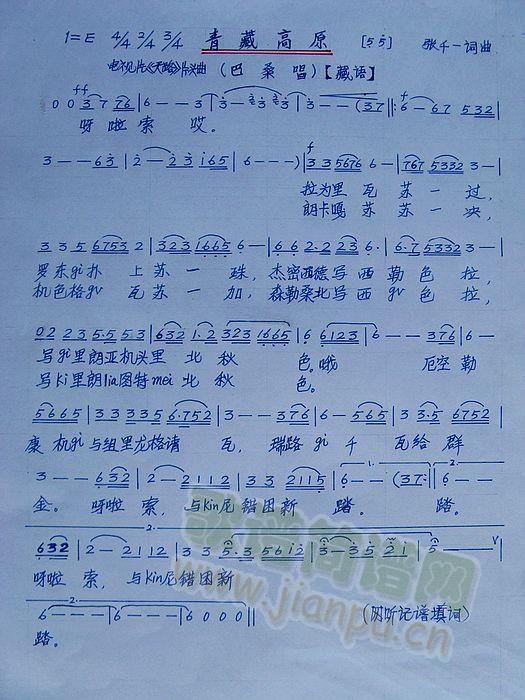 1=E 4/4 2/4 3/4 青藏高原 [5 5] 张千一词曲
电视片《天路》片头曲 (巴桑唱)【藏语】
ff f
0 0 3 7 76 | 6 - - 3 | 3 - 3 3 3 | 3 - - - (37 |: 6 - 67 532 |
呀啦索 哎。
3 - - 63 | 2 - 23 165 | 6 - - -) | 3 3 5676 6 - | 767 5332 3 - |
拉为里瓦苏一过,
朗卡嘎苏苏一决,
3 3 5 6753 2 | 323 1665 6 - | 6 6 2·2 23 6· | 6·7 5332 3 - |
罗东gi扑上苏一珠,杰密西德写西勒色拉,
机色格gv瓦苏一加,森勒桑北写西gv色拉,
02 23 5·5 53 | 632 1·2 323 1665 | 6 6123 6 - | 6 - - 376 | 6 - -
写gi里朗亚机头里北秋色。哦 厄空勒
写ki里朗lia图特mei北秋色。
5665 | 33 335 6·752 | 3 - - 376 | 6 - 565 | 3 3·5 6752 |
康机gi与组里尤格请瓦,瑞路gi千瓦给群
3 - - 632 | 2 - 2112 | 3 3 2115 | 6 - - - | 6 - - (37 :| 6 - - -
金。呀啦索,与kin尼错因新踏。踏。
632 | 2 - 2112 | 3 3 5·3 5612 | 3 - 35 21 | 5 - - - V
呀啦索,与kin尼错因新
6 - - - | 6 - - - | 6 0 0 0 ||
(附听记谱填词)
踏。
歌谱简谱网
www.jianpu.cn